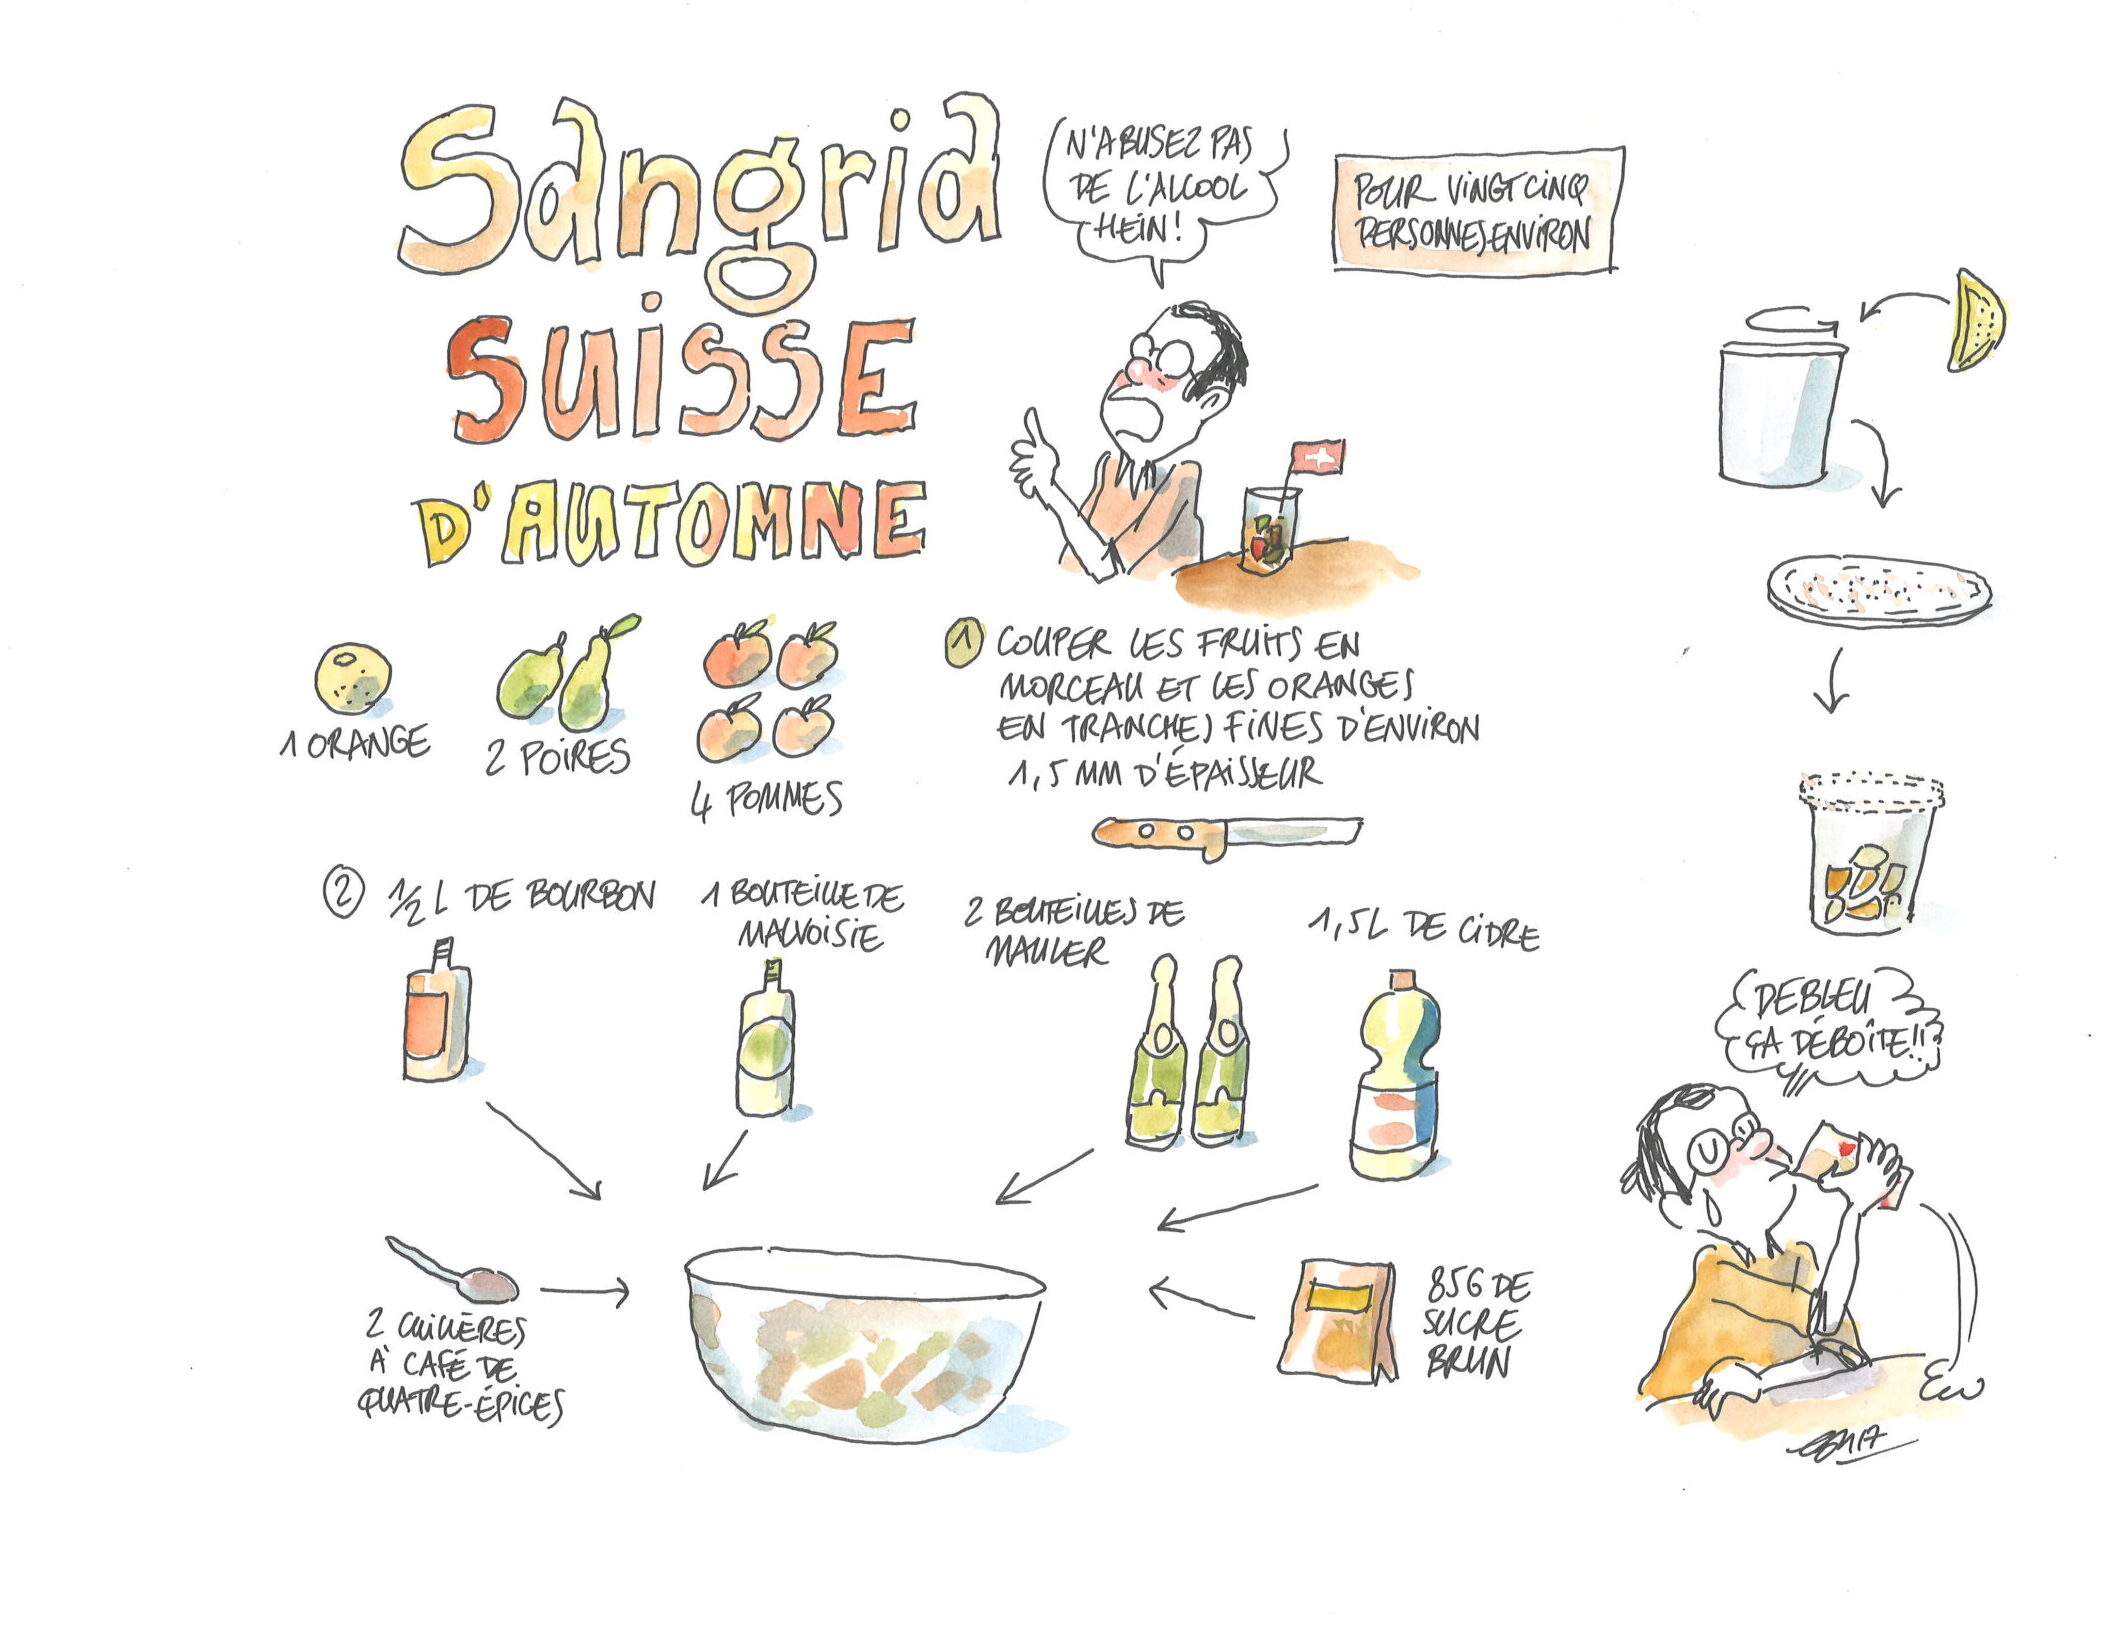 Sangria
SUISSE
D'AUTOMNE
N'ABUSEZ PAS
DE L'ALCOOL
HEIN!
POUR VINGT CINQ
PERSONNES ENVIRON
1 ORANGE
2 POIRES
4 POMMES
1 COUPER LES FRUITS EN
MORCEAU ET LES ORANGES
EN TRANCHES FINES D'ENVIRON
1,5 MM D'ÉPAISSEUR
2 1/2 L DE BOURBON
1 BOUTEILLE DE
MALVOISIE
2 BOUTEILLES DE
MAULER
1,5L DE CIDRE
2 CUILLÈRES
À CAFÉ DE
QUATRE-ÉPICES
85G DE
SUCRE
BRUN
DEBLEU
ÇA DÉBOÎTE!!